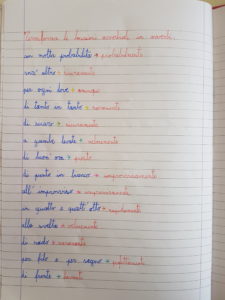 Trasforma le locuzioni avverbiali in avverbi
con molta probabilità → probabilmente
senz'altro → sicuramente
per ogni dove → ovunque
di tanto in tanto → raramente
di sicuro → sicuramente
a gambe levate → velocemente
di buon'ora → presto
di punto in bianco → improvvisamente
all'improvviso → improvvisamente
in quattro e quattr'otto → rapidamente
alla svelta → velocemente
di rado → raramente
per filo e per segno →
di fronte → davanti